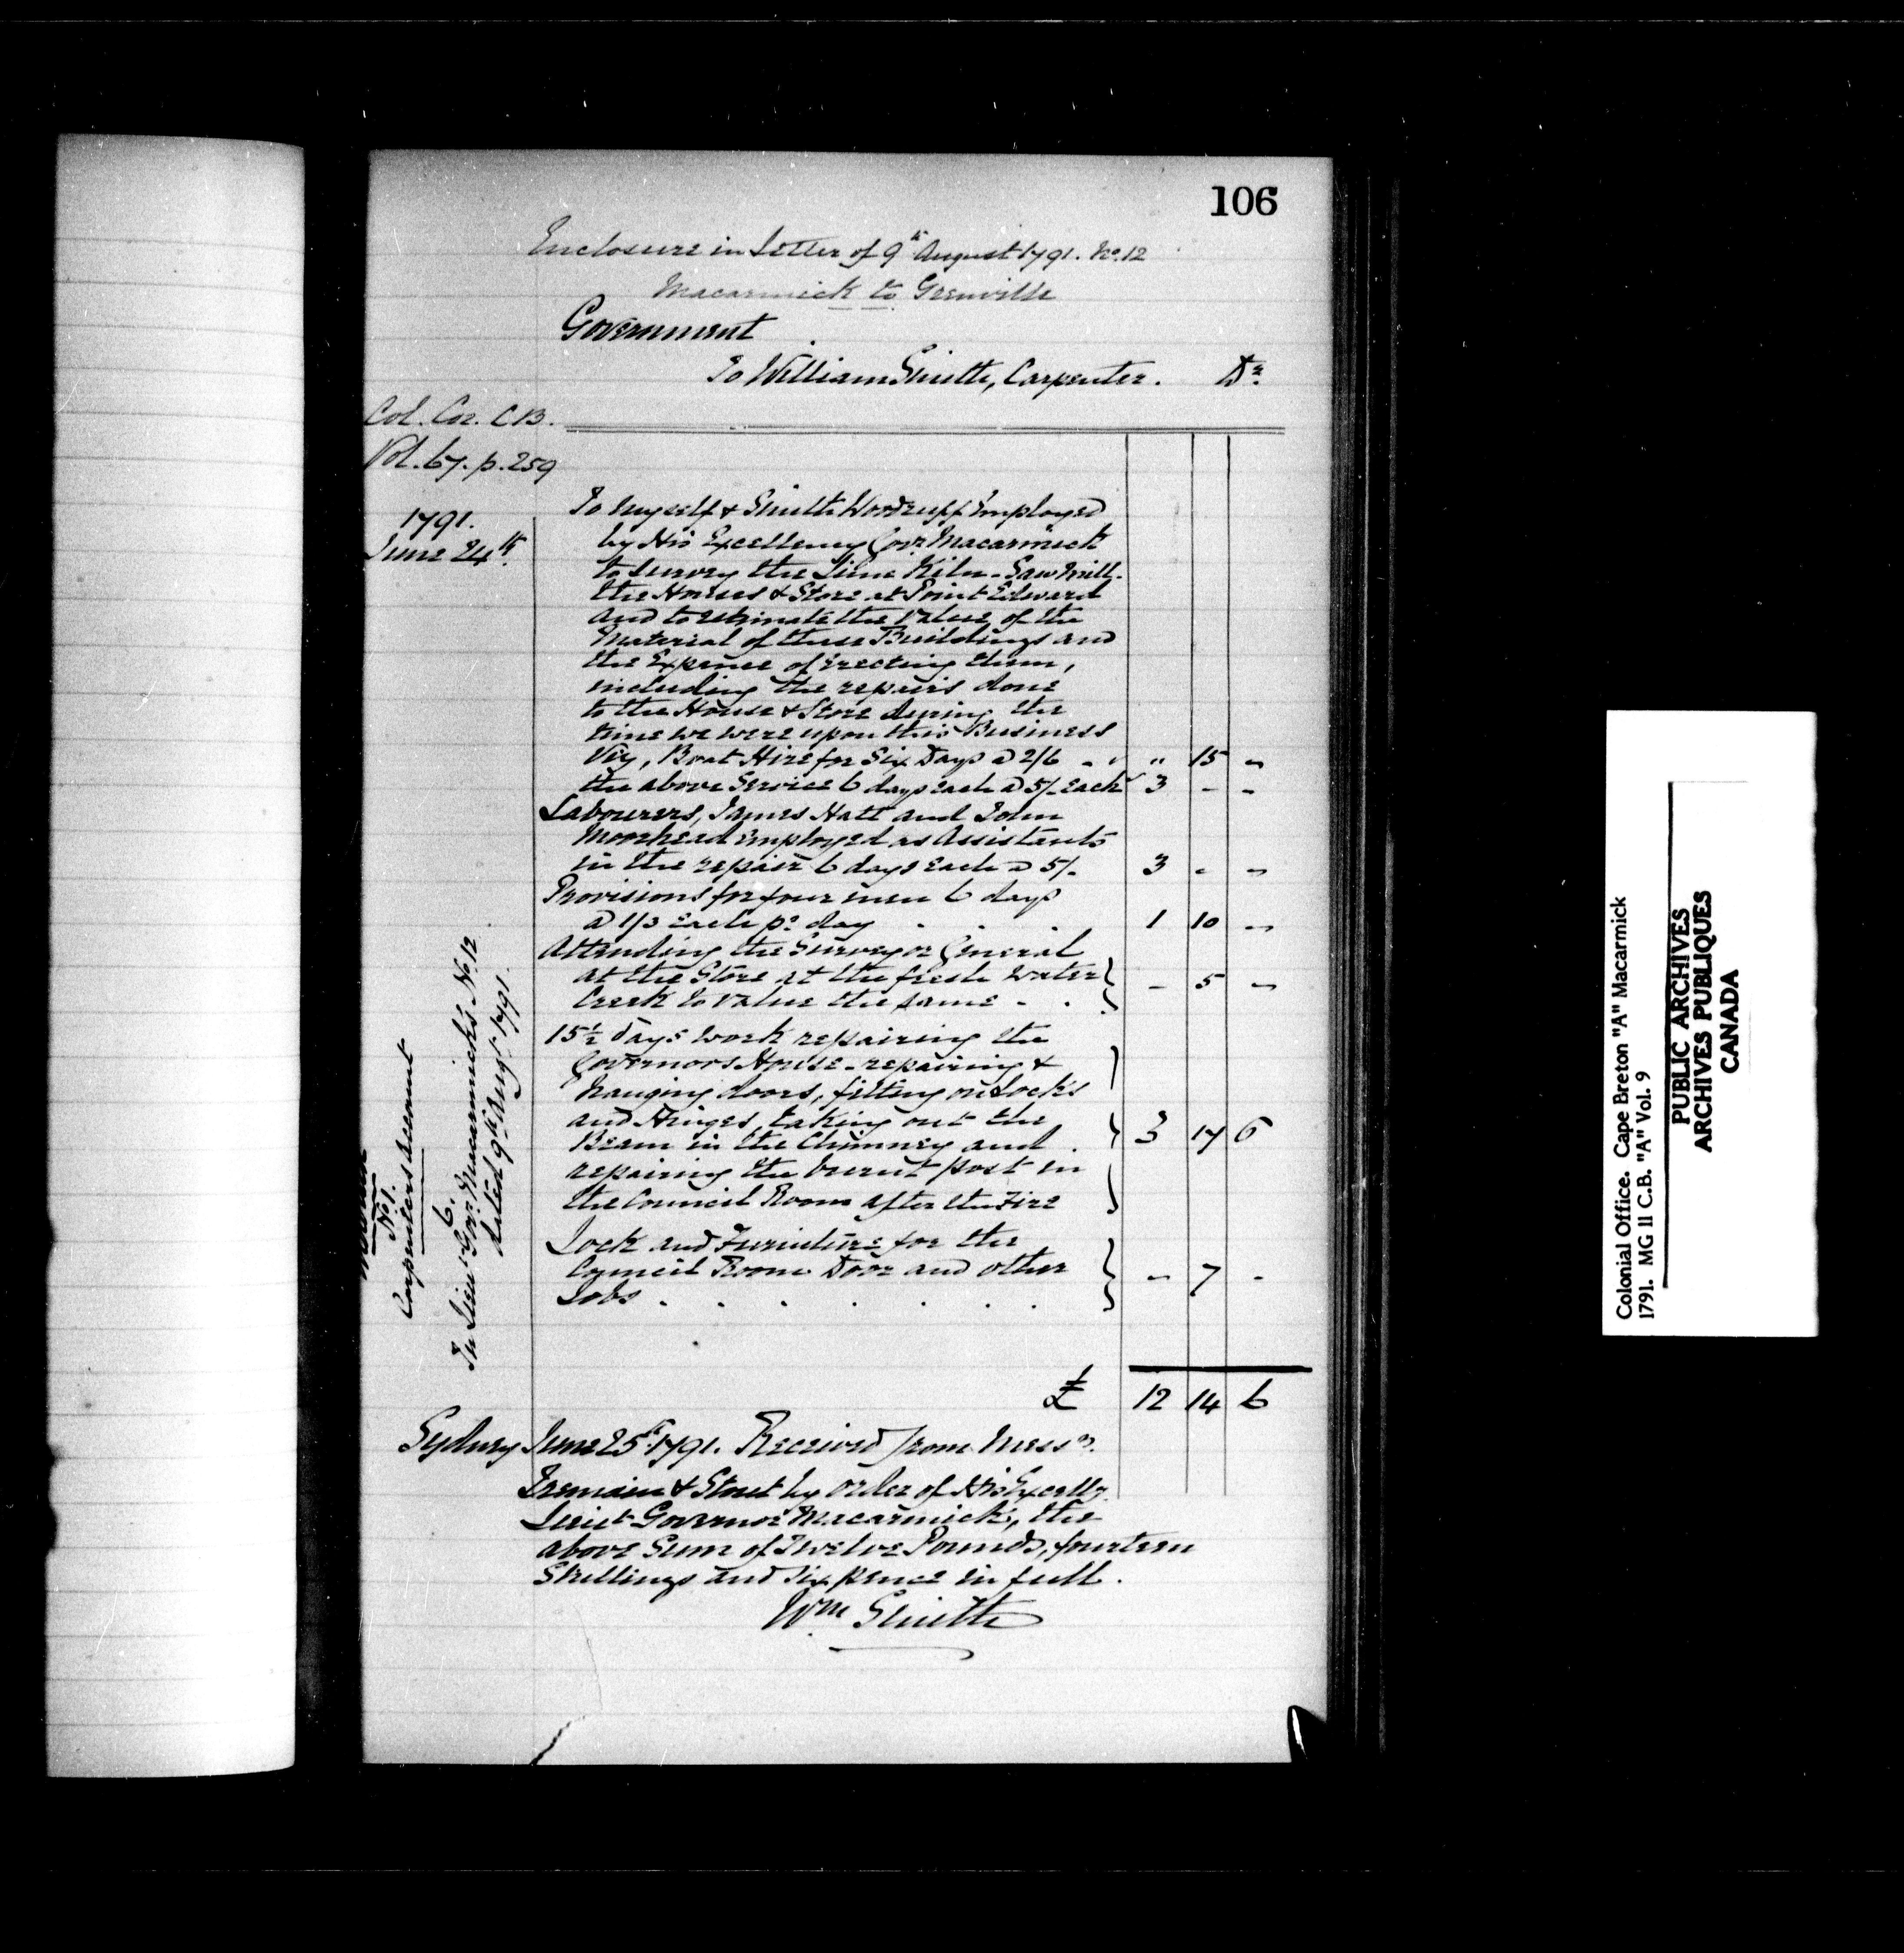 106
Enclosure in Letter of 9th August 1791. No. 12
Macarmick to Grenville
Government
To William Smith, Carpenter. Dr
Col. Cor. C.B.
Vol. 67. p. 259
1791.
June 24th.
To myself & Smith Woodruff Employed
by His Excellency Govr Macarmick
to survey the Lime Kiln - Saw Mill -
the Houses & Store at Point Edward
and to estimate the Value of the
Material of these Buildings and
the Expence of Erecting them,
including the repairs done
to the House & Store during the
time we were upon this Business
Viz, Boat Hire for Six Days @ 2/6 - " " 15 -
the above Service 6 days each @ 5/- Each 3 - -
Labourers, James Hatt and John
Moorhead Employed as Assistants
in the repair 6 days Each @ 5/- 3 - -
Provisions for four men 6 days
@ 1/3 Each pr day . . . 1 10 -
Attending the Surveyor General
at the Store at the fresh Water
Creek to value the same - . - 5 -
15½ days work repairing the
Governors House - repairing &
hanging doors, fitting on Locks
and Hinges, taking out the
Beam in the Chimney and . 3 17 6
repairing the burnt post in
the Council Room after the Fire
Lock and Furniture for the
Council Room Door and other - 7 -
Jobs . . . . . . .
£ 12 14 6
Sydney June 25th 1791. Received from Messrs.
Tremain & Stout by order of His Excelly
Lieut Governor Macarmick, the
above Sum of Twelve Pounds, fourteen
Shillings and Six pence in full.
Wm Smith
No. 1.
Carpenters Account
6.
In Lieut Govr. Macarmick's No. 12
dated 9th Augt 1791.
Colonial Office. Cape Breton "A" Macarmick
1791. MG 11 C.B. "A" Vol. 9
PUBLIC ARCHIVES
ARCHIVES PUBLIQUES
CANADA